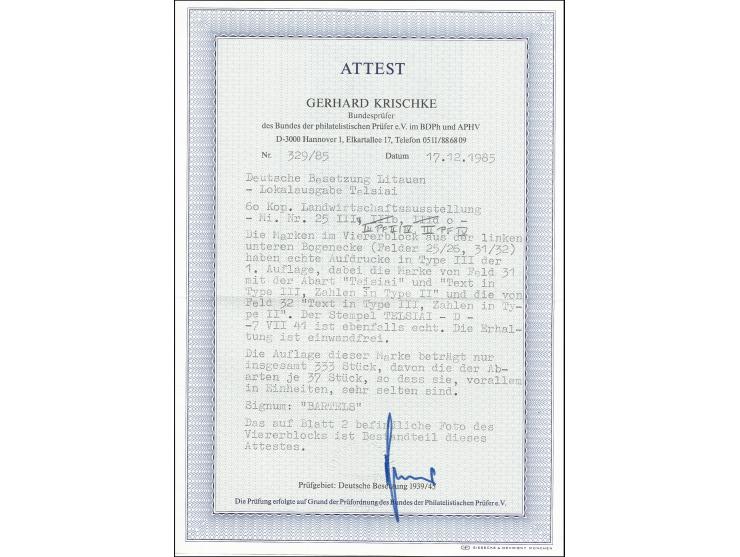 ATTEST
GERHARD KRISCHKE
Bundesprüfer
des Bundes der philatelistischen Prüfer e.V. im BDPh und APHV
D-3000 Hannover 1, Elkartallee 17, Telefon 0511/886809
Nr. 329/85 Datum 17.12.1985
Deutsche Besetzung Litauen
- Lokalausgabe Telsiai
6o Kop. Landwirtschaftsausstellung
- Mi. Nr. 25 III, IIIb, IIId o -
III PF II/IV III PF IV
Die Marken im Viererblock aus der linken
unteren Bogenecke (Felder 25/26, 31/32)
haben echte Aufdrucke in Type III der
1. Auflage, dabei die Marke von Feld 31
mit der Abart "Teisiai" und "Text in
Type III, Zahlen in Type II" und die von
Feld 32 "Text in Type III, Zahlen in Ty-
pe II". Der Stempel TELSIAI - D -
-7 VII 41 ist ebenfalls echt. Die Erhal-
tung ist einwandfrei.
Die Auflage dieser Marke beträgt nur
insgesamt 333 Stück, davon die der Ab-
arten je 37 Stück, so dass sie, vorallem
in Einheiten, sehr selten sind.
Signum: "BARTELS"
Das auf Blatt 2 befindliche Foto des
Viererblocks ist Bestandteil dieses
Attestes.
Prüfgebiet: Deutsche Besetzung 1939/45
Die Prüfung erfolgte auf Grund der Prüfordnung des Bundes der Philatelistischen Prüfer e.V.
GIESECKE & DEVRIENT MÜNCHEN